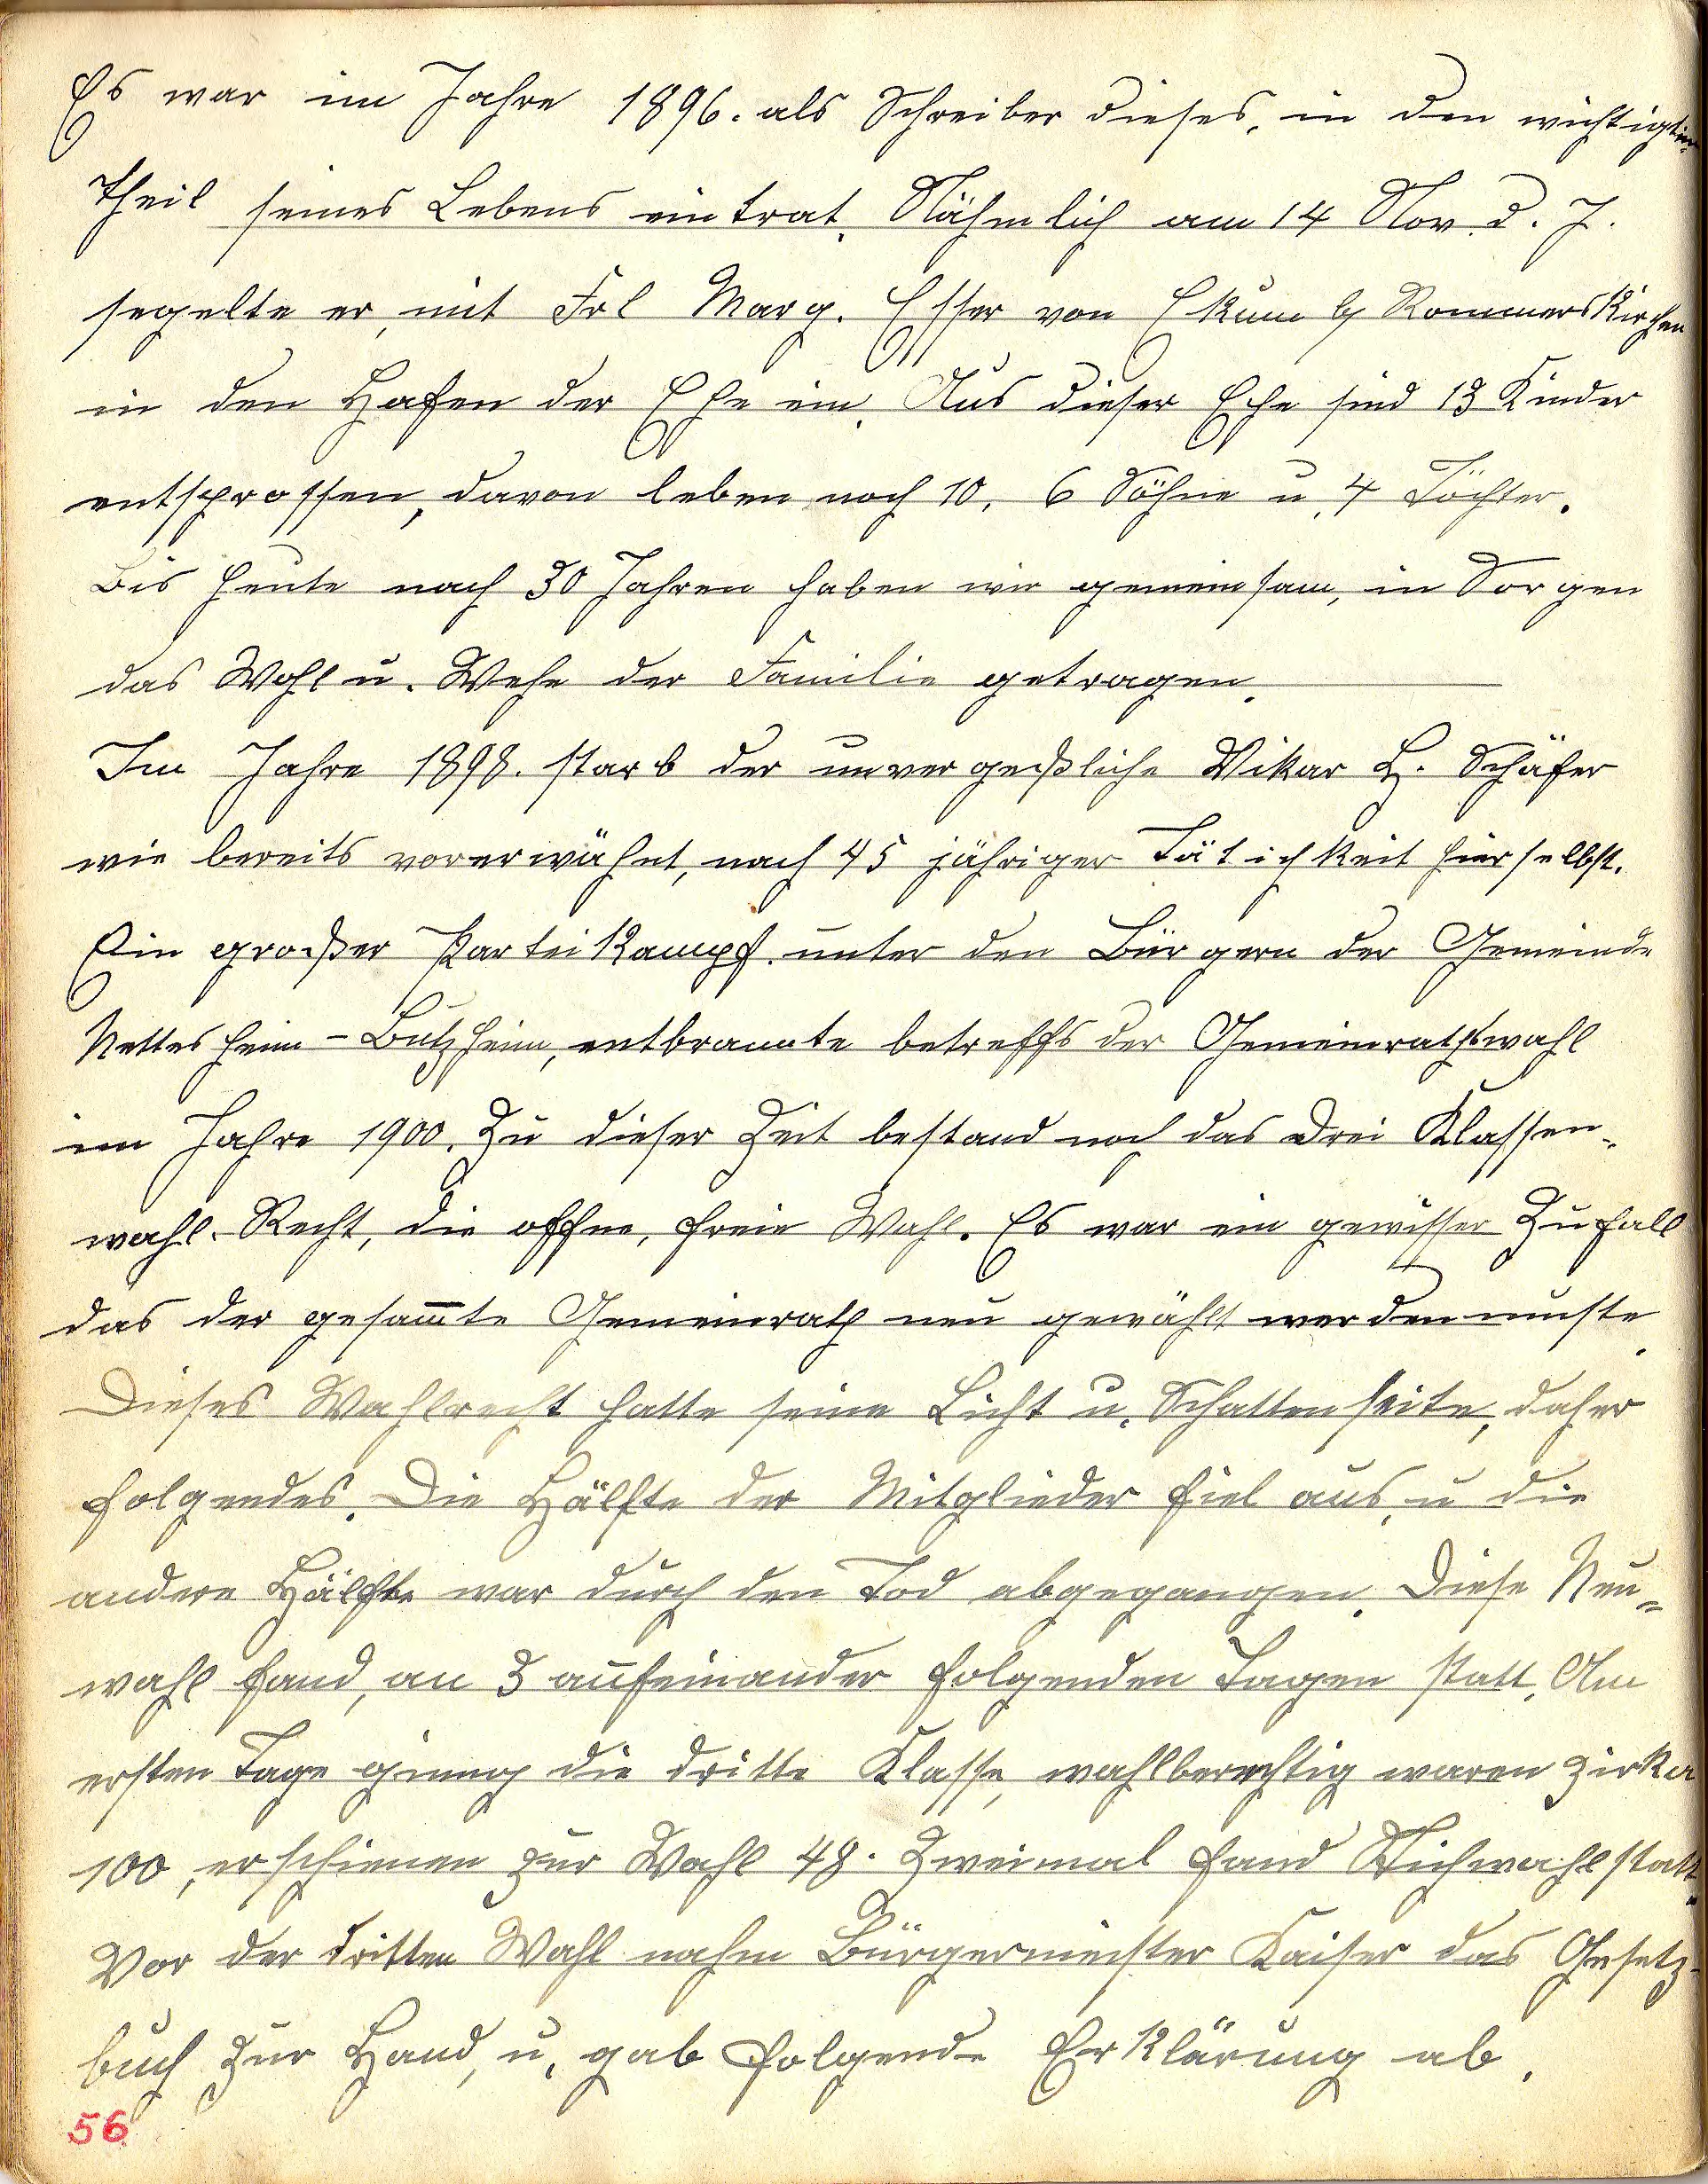 Es war im Jahre 1896. als Schreiber dieses, in den wichtigsten
Theil seines Lebens eintrat. Nähmlich am 14 Nov. d. J.
segelte er, mit Frl Marg. Esser von Ekum b/ Rommerskirchen
in den Hafen der Ehe ein. Aus dieser Ehe sind 13 Kinder
entsprossen, davon leben noch 10, 6 Söhne u. 4 Töchter.
Bis heute nach 30 Jahren haben wir gemeinsam, in Sorgen
das Wohl u. Wehe der Familie getragen.
Im Jahre 1898. starb der unvergeßliche Vikar H. Schäfer
wie bereits vorerwähnt, nach 45 jähriger Tätichkeit hierselbst.
Ein großer Parteikampf unter den Bürgern der Gemeinde
Nettesheim-Butzheim, entbrannte betreffs der Gemeinrathswahl
im Jahre 1900. Zu dieser Zeit bestand noch das Drei Klassen-
wahl-Recht, die offne, freie Wahl. Es war ein gewisser Zufall
das der gesam̄te Gemeinrath neu gewählt werden muste.
Dieses Wahlrecht hatte seine Licht u. Schattenseite, daher
folgendes. Die Hälfte der Mitglieder fiel aus, u die
andere Hälfte war durch den Tod abgegangen. Diese Neu=
wahl fand, an 3 aufeinander folgenden Tagen statt. Am
ersten Tage ginng die dritte Klasse, wahlberechtig waren zirka
100, erschienen zur Wahl 48. Zweimal fand Stichwahl statt.
Vor der dritten Wahl nahm Bürgermeister Kaiser das Gesetz-
buch zur Hand, u. gab folgende Erklärung ab.
56